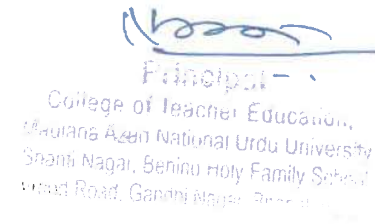 Principal
College of Teacher Education,
Maulana Azad National Urdu University
Shanti Nagar, Behind Holy Family School
Road, Gandhi Nagar,